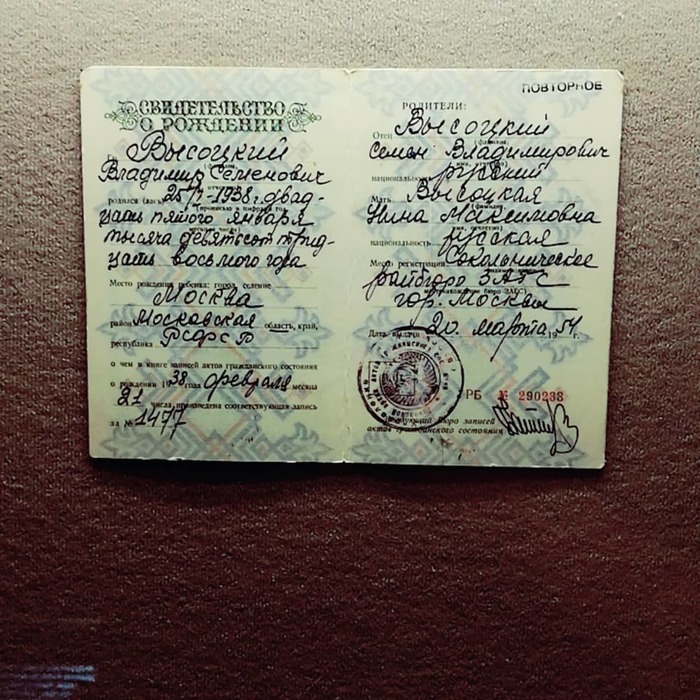 СВИДЕТЕЛЬСТВО
О РОЖДЕНИИ
Высоцкий
Владимир Семенович
родился (лась) 25/I-1938 г. двад-
цать пятого января
тысяча девятьсот трид-
цать восьмого года
Место рождения ребенка: город, селение
Москва
район Московская область, край,
республика РСФСР
о чем в книге записей актов гражданского состояния
о рождении 1938 года февраля месяца
21 числа произведена соответствующая запись
за № 2477
ПОВТОРНОЕ
РОДИТЕЛИ:
Отец Высоцкий
(фамилия,
Семен Владимирович
национальность русский
Мать Высоцкая
(фамилия,
Нина Максимовна
имя, отчество)
национальность русская
Место регистрации Сокольническое
райбюро ЗАГС
бюро ЗАГС)
гор. Москвы
Дата выдачи 20 марта 1954 г.
РБ № 290238
Заведующий бюро записей
актов гражданского состояния